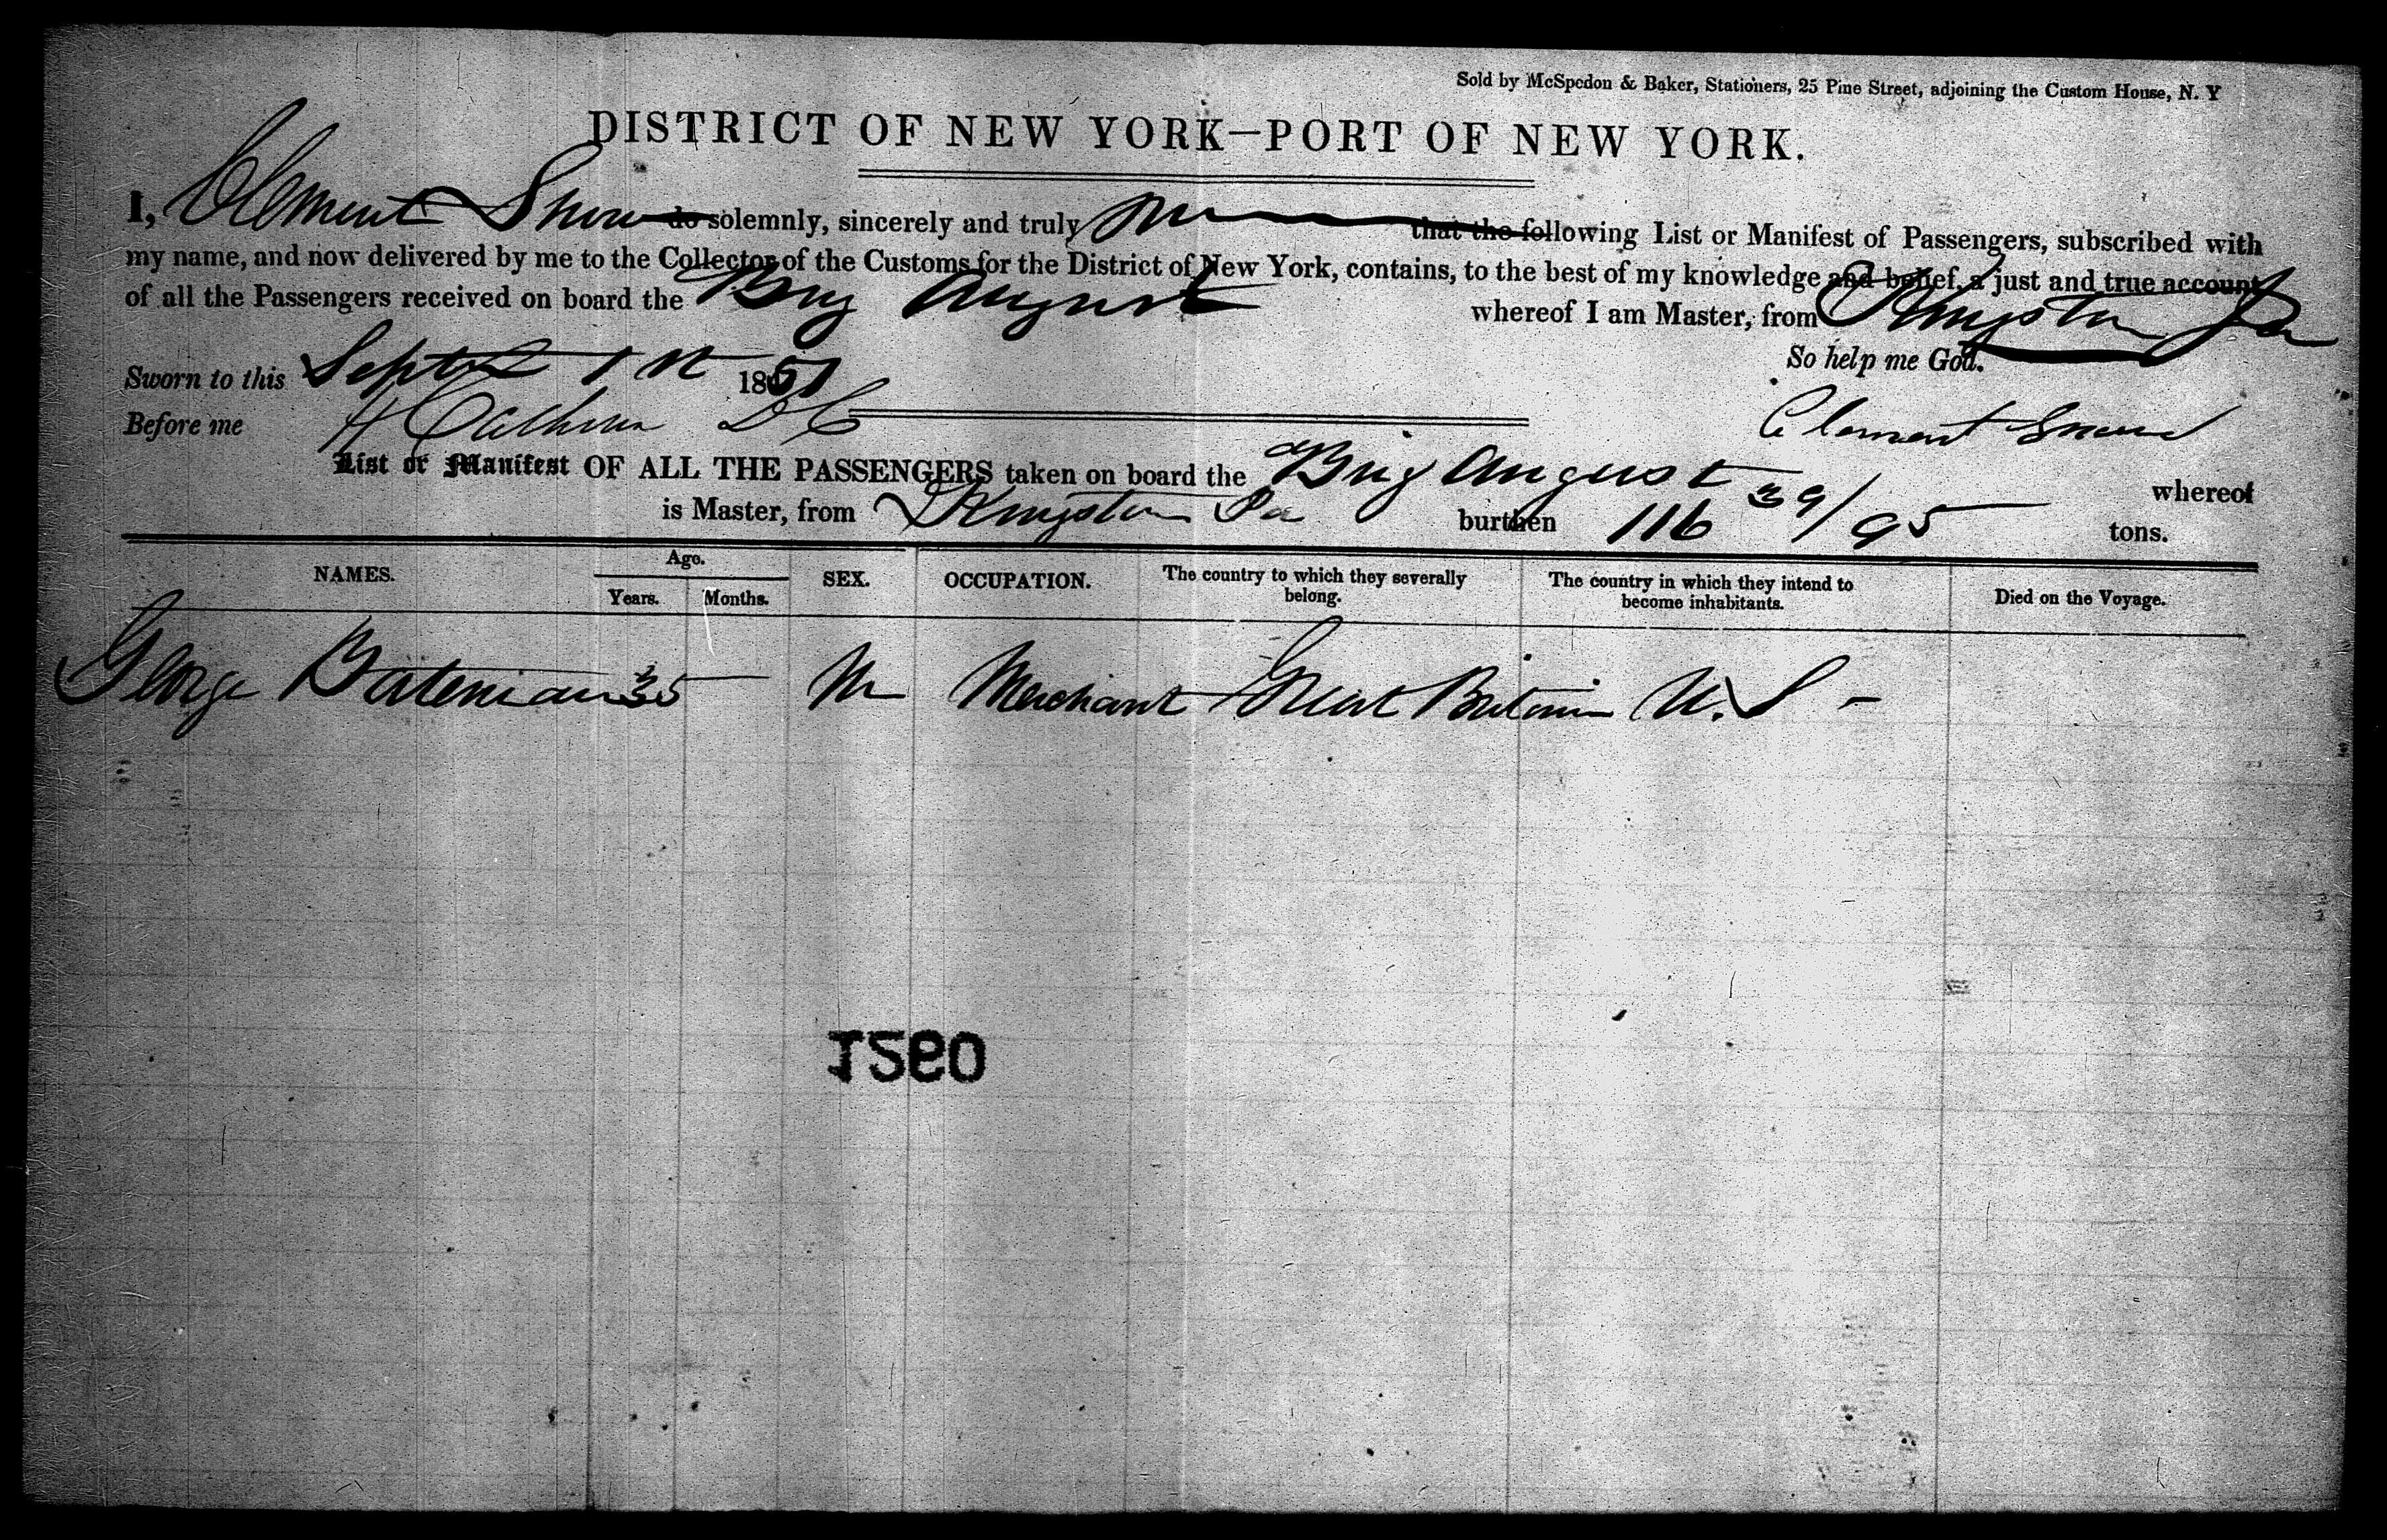 Sold by McSpedon & Baker, Stationers, 25 Pine Street, adjoining the Custom House, N. Y
DISTRICT OF NEW YORK—PORT OF NEW YORK.
I, Clement Snow do solemnly, sincerely and truly that the following List or Manifest of Passengers, subscribed with
my name, and now delivered by me to the Collector of the Customs for the District of New York, contains, to the best of my knowledge and belief, a just and true account
of all the Passengers received on board the Brig August whereof I am Master, from Kingston Ja
So help me God.
Sworn to this Septr 1st 1851
Before me H Calhoun D C
Clement Snow
List or Manifest OF ALL THE PASSENGERS taken on board the Brig August whereof
is Master, from Kingston Ja burthen 116 39/95 tons.
NAMES. Age. Years. Months. SEX. OCCUPATION. The country to which they severally belong. The country in which they intend to become inhabitants. Died on the Voyage.
George Bateman 35 — M Merchant Great Britain U.S —
0921